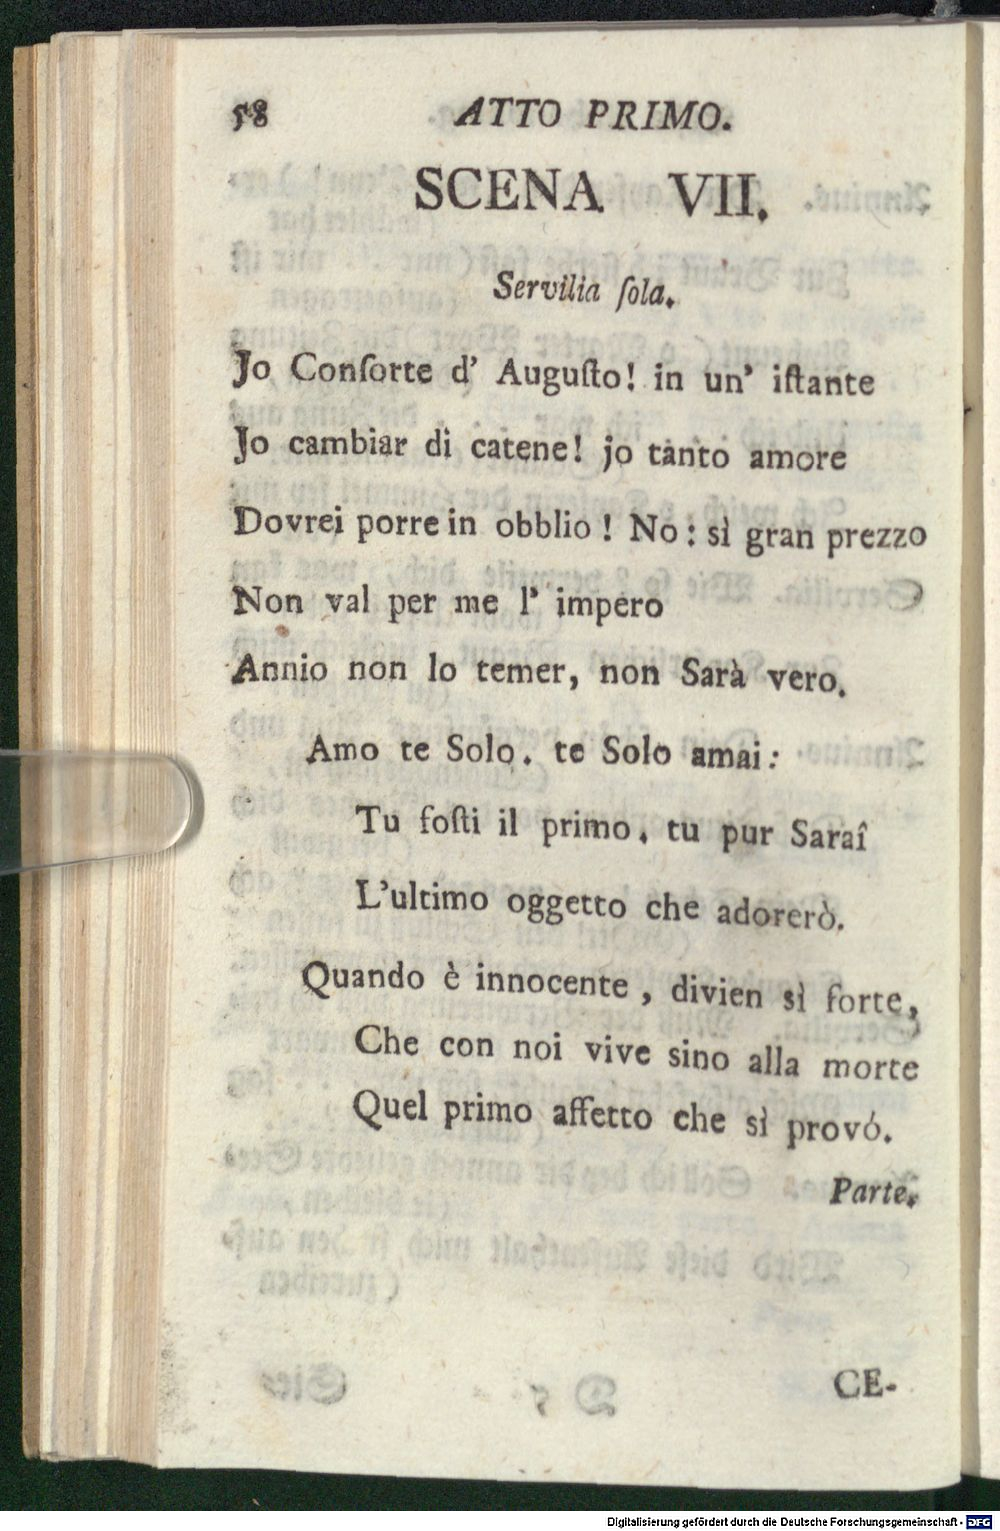 58 ATTO PRIMO.
SCENA VII.
Servilia ſola.
Jo Conſorte d' Auguſto! in un' iſtante
Jo cambiar di catene! jo tanto amore
Dovrei porre in obblio! No: sì gran prezzo
Non val per me l' impero
Annio non lo temer, non Sarà vero.
Amo te Solo. te Solo amai:
Tu foſti il primo. tu pur Saraî
L'ultimo oggetto che adorerò.
Quando è innocente, divien sì forte,
Che con noi vive sino alla morte
Quel primo affetto che sì provó.
Parte.
CE-
Digitalisierung gefördert durch die Deutsche Forschungsgemeinschaft - DFG